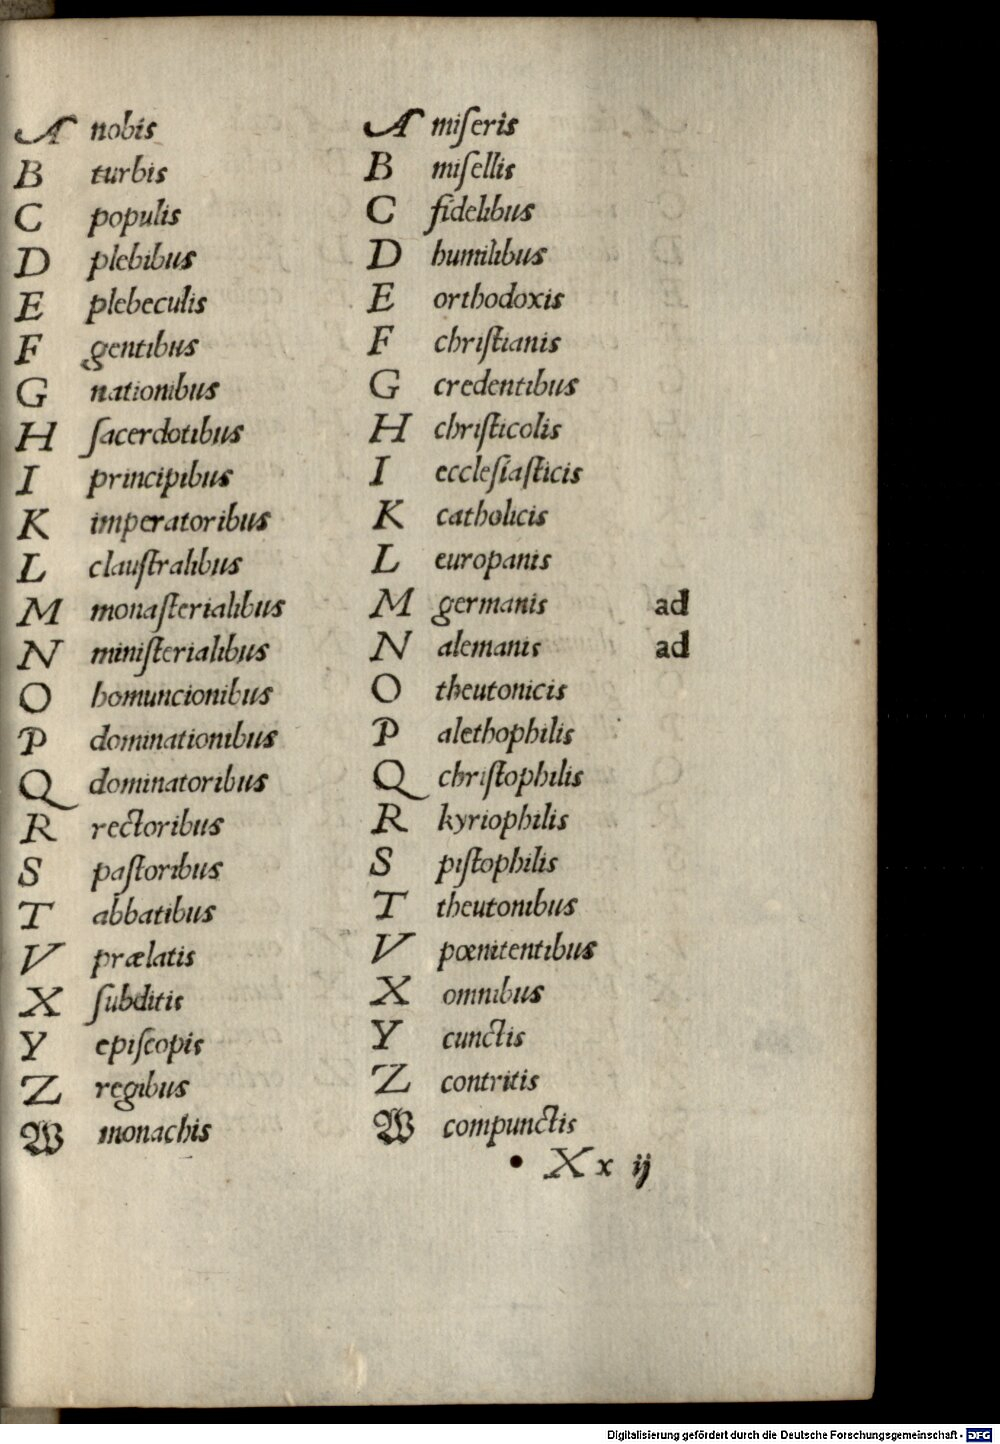 A nobis
B turbis
C populis
D plebibus
E plebeculis
F gentibus
G nationibus
H ſacerdotibus
I principibus
K imperatoribus
L clauſtralibus
M monaſterialibus
N miniſterialibus
O homuncionibus
P dominationibus
Q dominatoribus
R rectoribus
S paſtoribus
T abbatibus
V prælatis
X ſubditis
Y epiſcopis
Z regibus
W monachis
A miſeris
B miſellis
C fidelibus
D humilibus
E orthodoxis
F chriſtianis
G credentibus
H chriſticolis
I eccleſiaſticis
K catholicis
L europanis
M germanis ad
N alemanis ad
O theutonicis
P alethophilis
Q chriſtophilis
R kyriophilis
S piſtophilis
T theutonibus
V pœnitentibus
X omnibus
Y cunctis
Z contritis
W compunctis
• X x ij
Digitalisierung gefördert durch die Deutsche Forschungsgemeinschaft - DFG